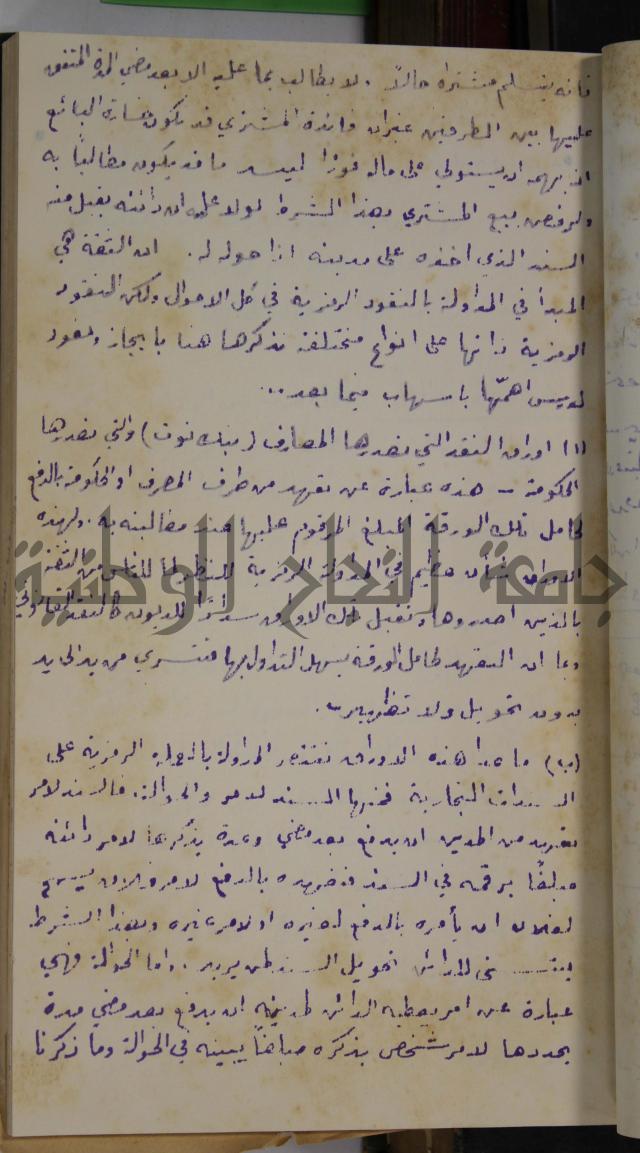 فانه يتسلم مشتراه حالاً. ولا يطالب بما عليه الا بعد مضي المدة المتفق
عليها بين الطرفين غير ان فائدة المشتري قد تكون خسارة البائع
الذي يهمه ان يستولي على ماله فوراً ليسد ما قد يكون مطالباً به
ولرفض بيع المشتري بهذا الشرط لولا علمه ان دائنه يقبل منه
السند الذي اخذه على مدينه اذا حوله له. ان الثقة هي
المبدأ في المداولة بالنقود الرمزية في كل الاحوال ولكن النقود
الرمزية ذاتها على انواع مختلفة نذكرها هنا بايجاز ونعود
لدرس اهمّها باسهاب فيما بعد..
(١) اوراق النقد التي تصدرها المصارف (بنك نوت) والتي تصدرها
الحكومة - هذه عبارة عن تعهد من طرف المصرف او الحكومة بالدفع
لحامل تلك الورقة المبلغ المرقوم عليها عند مطالبته به. ولهذه
الاوراق شأن عظيم في المداولة الرمزية للنظر لما للناس من الثقة
بالذين اصدروها وتقبل تلك الاوراق سداداً للديون كالنقد القانوني
وبما ان التعهد لحامل الورقة يسهل التداول بها فتسري من يد الى يد
بدون تحويل ولا تظهير.
(ب) ما عدا هذه الاوراق تقتصر المداولة بالعملة الرمزية على
السندات التجارية فمنها السند لامر والحوالة. فالسند لامر
تعهد من المدين ان يدفع بعد مضي وعدة يذكرها لامر دائنه
مبلغاً يرقمه في السند فتعهده بالدفع لامر فلان يسمح
لفلان ان يأمره بالدفع لغيره او لامر غيره وبهذا الشرط
يتسنى للدائن تحويل السند لمن يريد. واما الحوالة فهي
عبارة عن امر يعطيه الدائن لمدينه ان يدفع بعد مضي مدة
يحددها لامر شخص يذكره مبلغاً يبينه في الحوالة وما ذكرنا
جامعة النجاح الوطنية